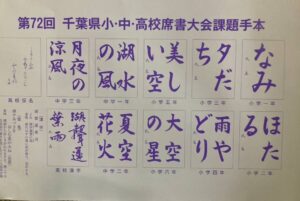 第72回 千葉県小・中・高校席書大会課題手本
なみ
小学一年
夕だち
小学三年
美しい空
小学五年
湖水の風
中学一年
月夜の涼風
中学三年
高校仮名
ほたる
小学二年
雨やどり
小学四年
大空の星
小学六年
夏空花火
中学二年
蹴聲蓮葉雨
高校漢字